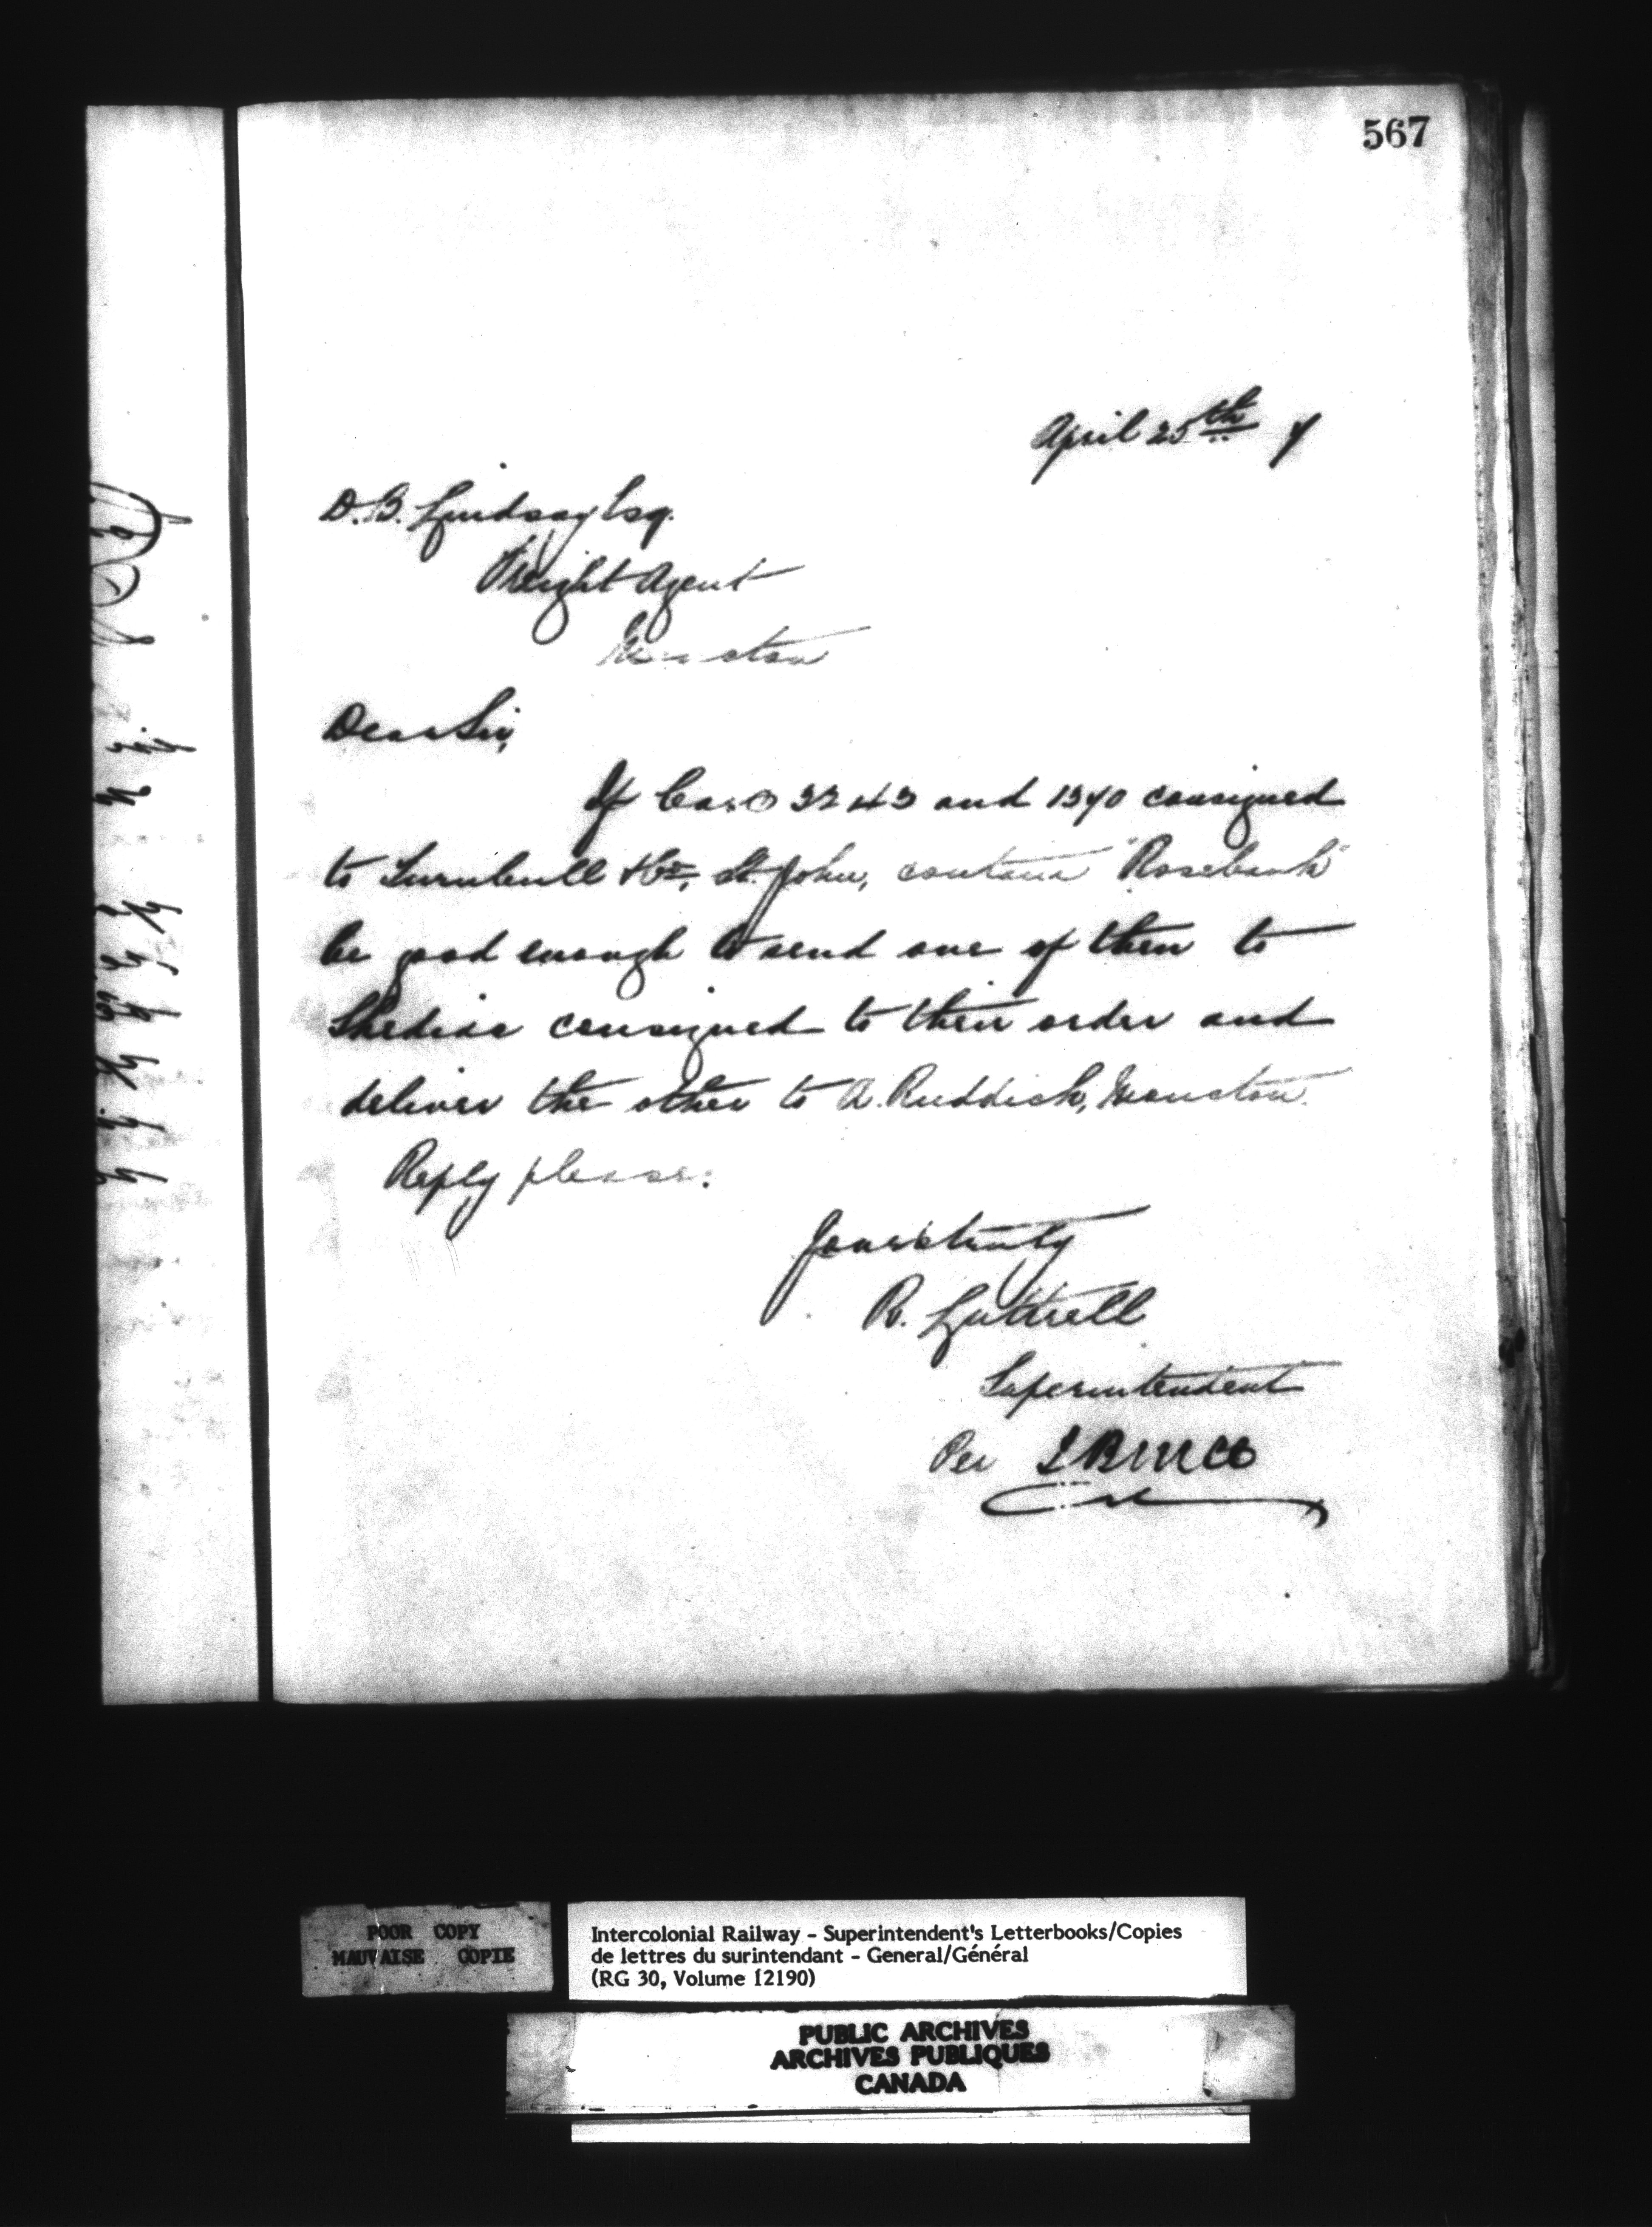 567
April 25th 7
D.B. Lindsay Esq.
Freight Agent
Moncton
Dear Sir,
If Cars 3243 and 1370 consigned
to Turnbull & Co, St. John, contain "Rosebank"
be good enough to send one of them to
Shediac consigned to their order and
deliver the other to A. Ruddick, Moncton.
Reply please.
Yours truly
R. Luttrell
Superintendent
Per
POOR COPY
MAUVAISE COPIE
Intercolonial Railway - Superintendent's Letterbooks/Copies
de lettres du surintendant - General/Général
(RG 30, Volume 12190)
PUBLIC ARCHIVES
ARCHIVES PUBLIQUES
CANADA